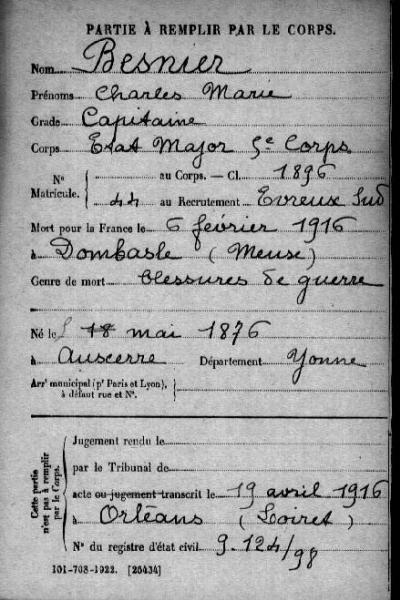 PARTIE À REMPLIR PAR LE CORPS.
Nom Besnier
Prénoms Charles Marie
Grade Capitaine
Corps Etat Major 5e Corps
N° Matricule. { au Corps. — Cl. 1896
44 au Recrutement Evreux Sud
Mort pour la France le 6 février 1916
à Dombasle (Meuse)
Genre de mort blessures de guerre
Né le 18 mai 1876
à Auxcerre Département Yonne
Arrt municipal (pr Paris et Lyon), à défaut rue et N°.
Cette partie n'est pas à remplir par le Corps.
Jugement rendu le
par le Tribunal de
acte ou jugement transcrit le 19 avril 1916
à Orléans (Loiret)
N° du registre d'état civil 9.124/98
101-708-1922. [26434]